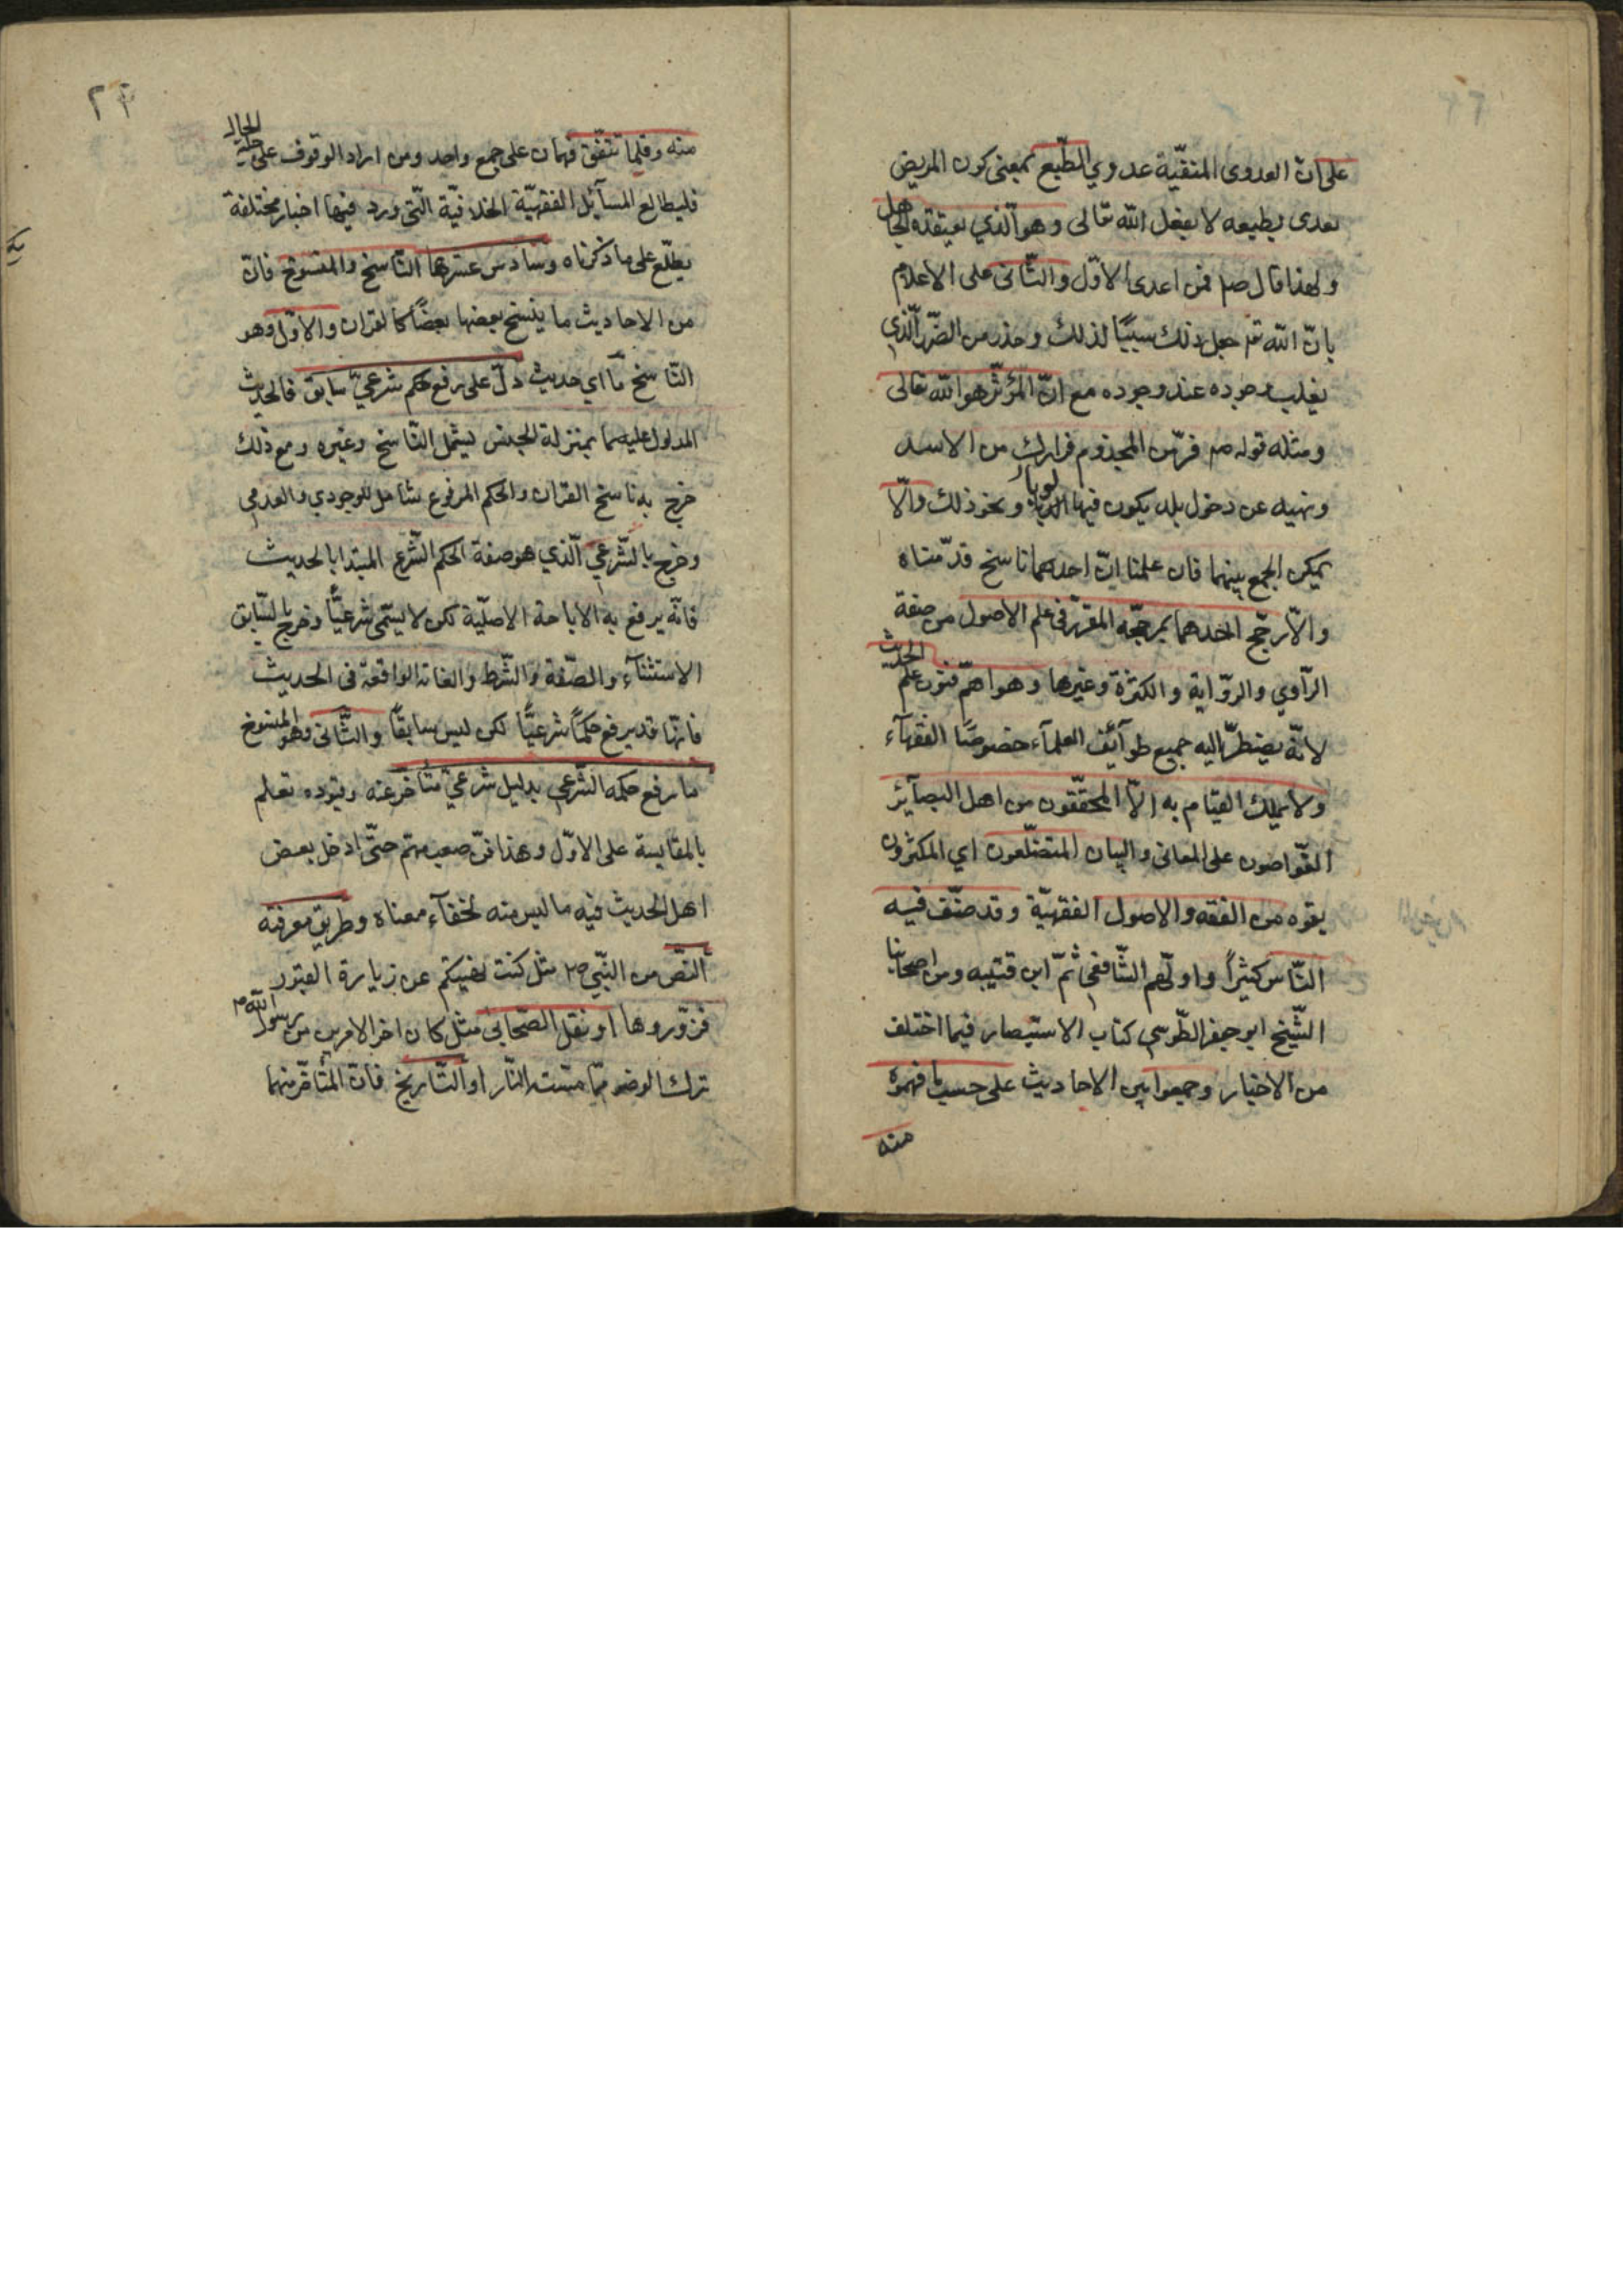 على ان العدوى المنفيّة عدوي الطّبع بمعنى كون المريض
يعدى بطبعه لا بفعل الله تعالى وهو الّذي يعتقده الجاهل
ولهذا قال صم فمن اعدى الاوّل والثّانى على الاعلام
بانّ الله تعم جعل ذلك سببًا لذلك وحذر من الضّرر الّذي
يغلب وجوده عند وجوده مع انّ المؤثّر هو الله تعالى
ومثله قوله صم فرّ من المجذوم فرارك من الاسد
ونهيه عن دخول بلد يكون فيها الوباء ونحو ذلك والّا
يمكن الجمع بينهما فان علمنا انّ احدهما ناسخ قدّمناه
والّا رجّح احدهما بمرجّحه المقرّر فى علم الاصول من صفة
الرّاوي والرّواية والكثرة وغيرها وهو اهمّ فنون علم الحديث
لانّه يضطرّ اليه جميع طوآئف العلمآء خصوصًا الفقهآء
ولا يملك القيام به الّا المحقّقون من اهل البصآئر
الغوّاصون على المعانى والبيان المتضلّعون اي المكثرون
بقوه من الفقه والاصول الفقهيّة وقد صنّف فيه
النّاس كثيرًا واوّلهم الشّافعي ثمّ ابن قتيبه ومن اصحابنا
الشّيخ ابو جعفر الطّوسي كتاب الاستبصار فيما اختلف
من الاخبار وجمعوا بين الاحاديث على حسب ما فهموه
منه
٢٣
منه وقلّما تتّفق فهمان على جمع واحد ومن اراد الوقوف على جلية الحال
فليطالع المسآئل الفقهيّة الخلافيّة الّتى ورد فيها اخبار مختلفة
يطّلع على ما ذكرناه وسادس عشرها النّاسخ والمنسوخ فان
من الاحاديث ما ينسخ بعضها بعضًا كالقران والاوّل وهو
النّاسخ ما اي حديث دلّ على رفع حكم شرعيّ سابق فالحديث
المدلول عليه بما بمنزلة الجنس يشمل النّاسخ وغيره ومع ذلك
خرج به ناسخ القران والحكم المرفوع شامل للوجودي والعدمي
وخرج بالشّرعي الّذي هو صفة الحكم الشّرع المبتدا بالحديث
فانّه يرفع به الاباحة الاصليّة لكن لا يسمّى شرعيًّا وخرج بالسّابق
الاستثنآء والصّفة والشّرط والغاية الواقعة فى الحديث
فانّها قد يرفع حكمًا شرعيًّا لكن ليس سابقًا والثّانى وهو المنسوخ
ما رفع حكمه الشّرعي بدليل شرعيّ متأخر عنه وقيوده تعلم
بالمقايسة على الاوّل وهذا فنّ صعب مهمّ حتّى ادخل بعض
اهل الحديث فيه ما ليس منه لخفآء معناه وطريق معرفته
النّص من النّبي ص مثل كنت نهيتكم عن زيارة القبور
فزوّروها او نقل الصّحابى مثل كان اخر الامرين من رسول الله
ترك الوضو ممّا مسّته النّار او التّاريخ فان المتأخّر منهما